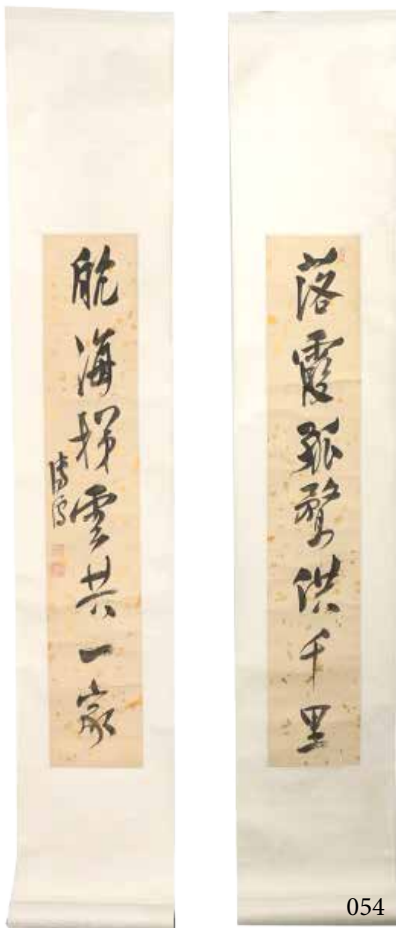 落霞孤鶩供千里
航海梯雲共一家
溥儒
054